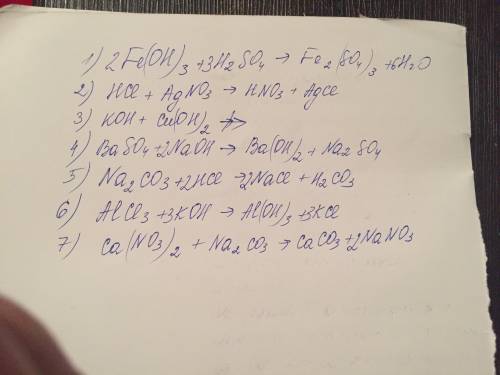 1) 2Fe(OH)3 + 3H2SO4 → Fe2(SO4)3 + 6H2O
2) HCl + AgNO3 → HNO3 + AgCl
3) KOH + Cu(OH)2 ↛
4) BaSO4 + 2NaOH → Ba(OH)2 + Na2SO4
5) Na2CO3 + 2HCl → 2NaCl + H2CO3
6) AlCl3 + 3KOH → Al(OH)3 + 3KCl
7) Ca(NO3)2 + Na2CO3 → CaCO3 + 2NaNO3